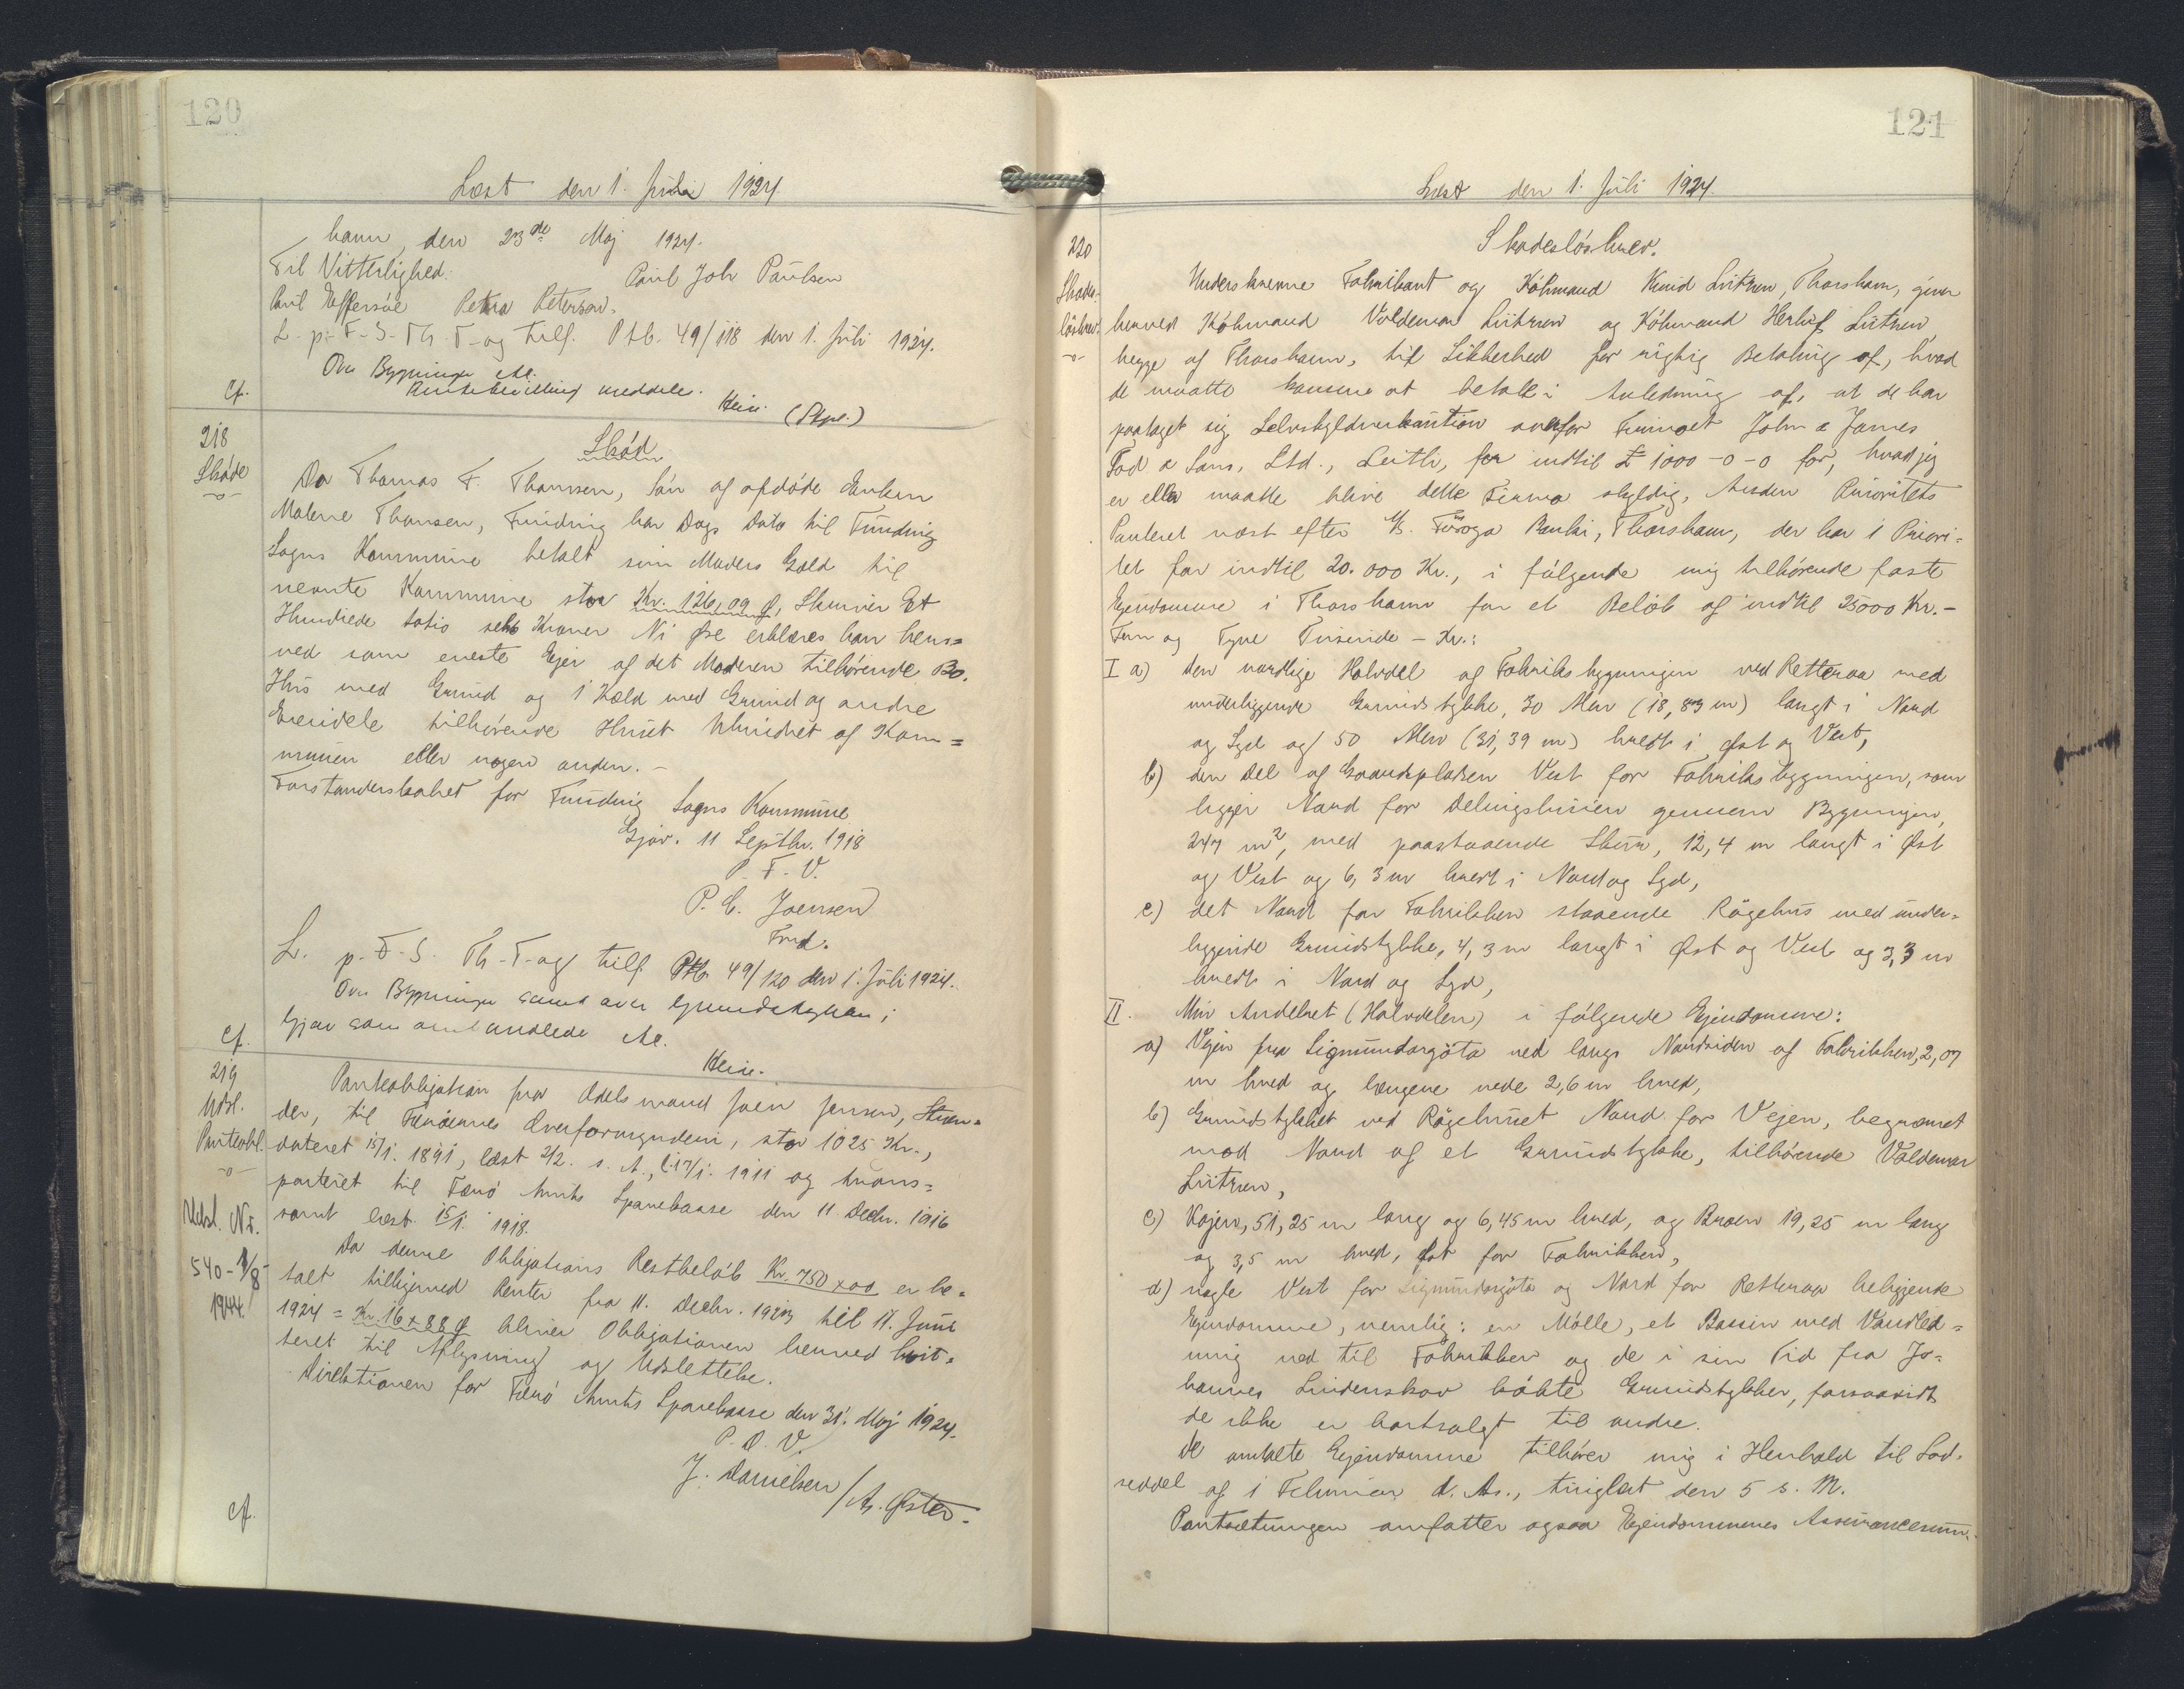 120
Læst den 1. Juli 1924
havn, den 23de Maj 1924.
Til Vitterlighed: Paul Joh Paulsen
Petra Petersen.
L. p. F. S. Th. T. og tilf. Ptb. 49/118 den 1. Juli 1924.
Ovr Bygningr
meddele.
Heise. (Pkpr.)
cf.
218
Skøde
Skød
Da Thomas F. Thomsen, Søn af afdøde Enken
Malene Thomsen, Funding har Dags Dato til Funding
Sogns Kommune betalt sin Moders Gæld til
nevnte Kommune stor Kr. 126,09 Ø, Skriver Et
Hundrede totio seks Kroner Ni Øre erklæres han hers=
ved som eneste Ejer af det Moderen tilhørende Bo.
Hus med Grund og 1 Kæld med Grund og andre
Eiendele tilhørende Huset Uhindret af Kom=
munen eller nogen anden. -
Forstanderskabet for Funding Sogns Kommune
Gjov. 11 Septbr. 1918
P. F. V.
P. C. Joensen
Fmd.
L. p. F. S. Th-T-og tilf. Ptb 49/120 den 1. Juli 1924.
Ovr Bygninger samt over Grundstykker i
Gjov som
Heise.
cf.
219
Udsl.
Panteobl.
-o-
Udsl. Nr.
540-
1944.
Panteobligation fra Odelsmand Joen Jensen, Stran=
der, til Færøernes Overformynderi, stor 1025 Kr.,
dateret 15/1. 1891, læst 2/2. s. A., 17/1. 1911 og trans=
porteret til Færø Amts Sparekasse den 11 Decbr. 1916
samt læst 15/1. 1918.
Da denne Obligations Restbeløb Kr. 750 x 00 er be=
talt tilligemed Renter fra 11. Decbr. 1923 til 11. Juni
1924 = Kr. 16 x 88 Ø bliver Obligationen herved kvit=
teret til Aflysning og Udslettelse.
Direktionen for Færø Amts Sparekasse den 31. Maj 1924.
P. D. V.
J. Danielsen /A. Øster.
cf.
121
Læst den 1. Juli 1924.
220
Skades-
løsbrev
-o-
Skadesløsbrev.
Underskrevne Fabrikant og Købmand Knud Lützen, Thorshavn, giver
herved Købmand Valdemar Lützen og Købmand Herluf Lützen,
begge af Thorshavn, til Sikkerhed for rigtig Betaling af, hvad
de maatte komme at betale i Anledning af, at de har
paataget sig Selvskyldnerkaution overfor Firmaet John & James
Tod & Sons, Ltd., Leith, for indtil £ 1000-0-0 for, hvad jeg
er eller maatte blive dette Firma skyldig, Anden Prioritets
Panteret næst efter A/S. Føroya Banki, Thorshavn, der har 1 Priori=
tet for indtil 20.000 Kr., i følgende mig tilhørende faste
Ejendomme i Thorshavn for et Beløb af indtil 25000 Kr. -
Fem og Tyve Tusinde - Kr.:
I a) den nordlige Halvdel af Fabriksbygningen ved Retteraa med
underliggende Grundstykke, 30 Alen (18,83 m) langt i Nord
og Syd og 50 Alen (31,39 m) bredt i Øst og Vest,
b) den Del af Gaardspladsen Vest for Fabriksbygningen, som
ligger Nord for Delingslinien gennem Bygningen,
247 m², med paastaaende Skur, 12,4 m langt i Øst
og Vest og 6,3 m bredt i Nord og Syd,
c) det Nord for Fabrikken staaende Røgehus med under=
liggende Grundstykke, 4,3 m langt i Øst og Vest og 3,3 m
bredt i Nord og Syd,
II. Min Andelsret (Halvdelen) i følgende Ejendomme:
a) Vejen fra Sigmundargöta ned langs Nordsiden af Fabrikken, 2,07
m bred og længere nede 2,6 m bred,
b) Grundstykket ved Røgehuset Nord for Vejen, begrænset
mod Nord af et Grundstykke, tilhørende Valdemar
Lützen,
c) Kajen, 51,25 m lang og 6,45 m bred, og Broen 19,25 m lang
og 3,5 m bred, Øst for Fabrikken,
d) nogle Vest for Sigmundargöta og Nord for Retteraa beliggende
Ejendomme, nemlig: en Mølle, et Bassin med Vandled=
ning ned til Fabrikken og de i sin Tid fra Jo=
hannes Lindenskov købte Grundstykker, forsaavidt
de ikke er bortsolgt til andre.
De omtalte Ejendomme tilhører mig i Henhold til Lod=
seddel af 1 Februar d. A., tinglæst den 5 s. M.
Pantsætningen omfatter ogsaa Ejendommenes Assurancesum=